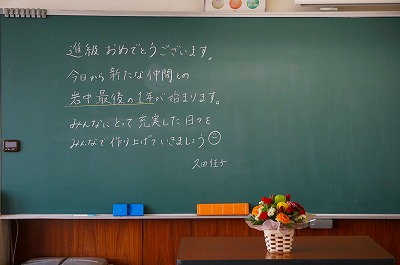 進級おめでとうございます。
今日から新たな仲間との
岩中最後の1年が始まります。
みんなにとって充実した日々を
みんなで作り上げていきましょう
久田佳子